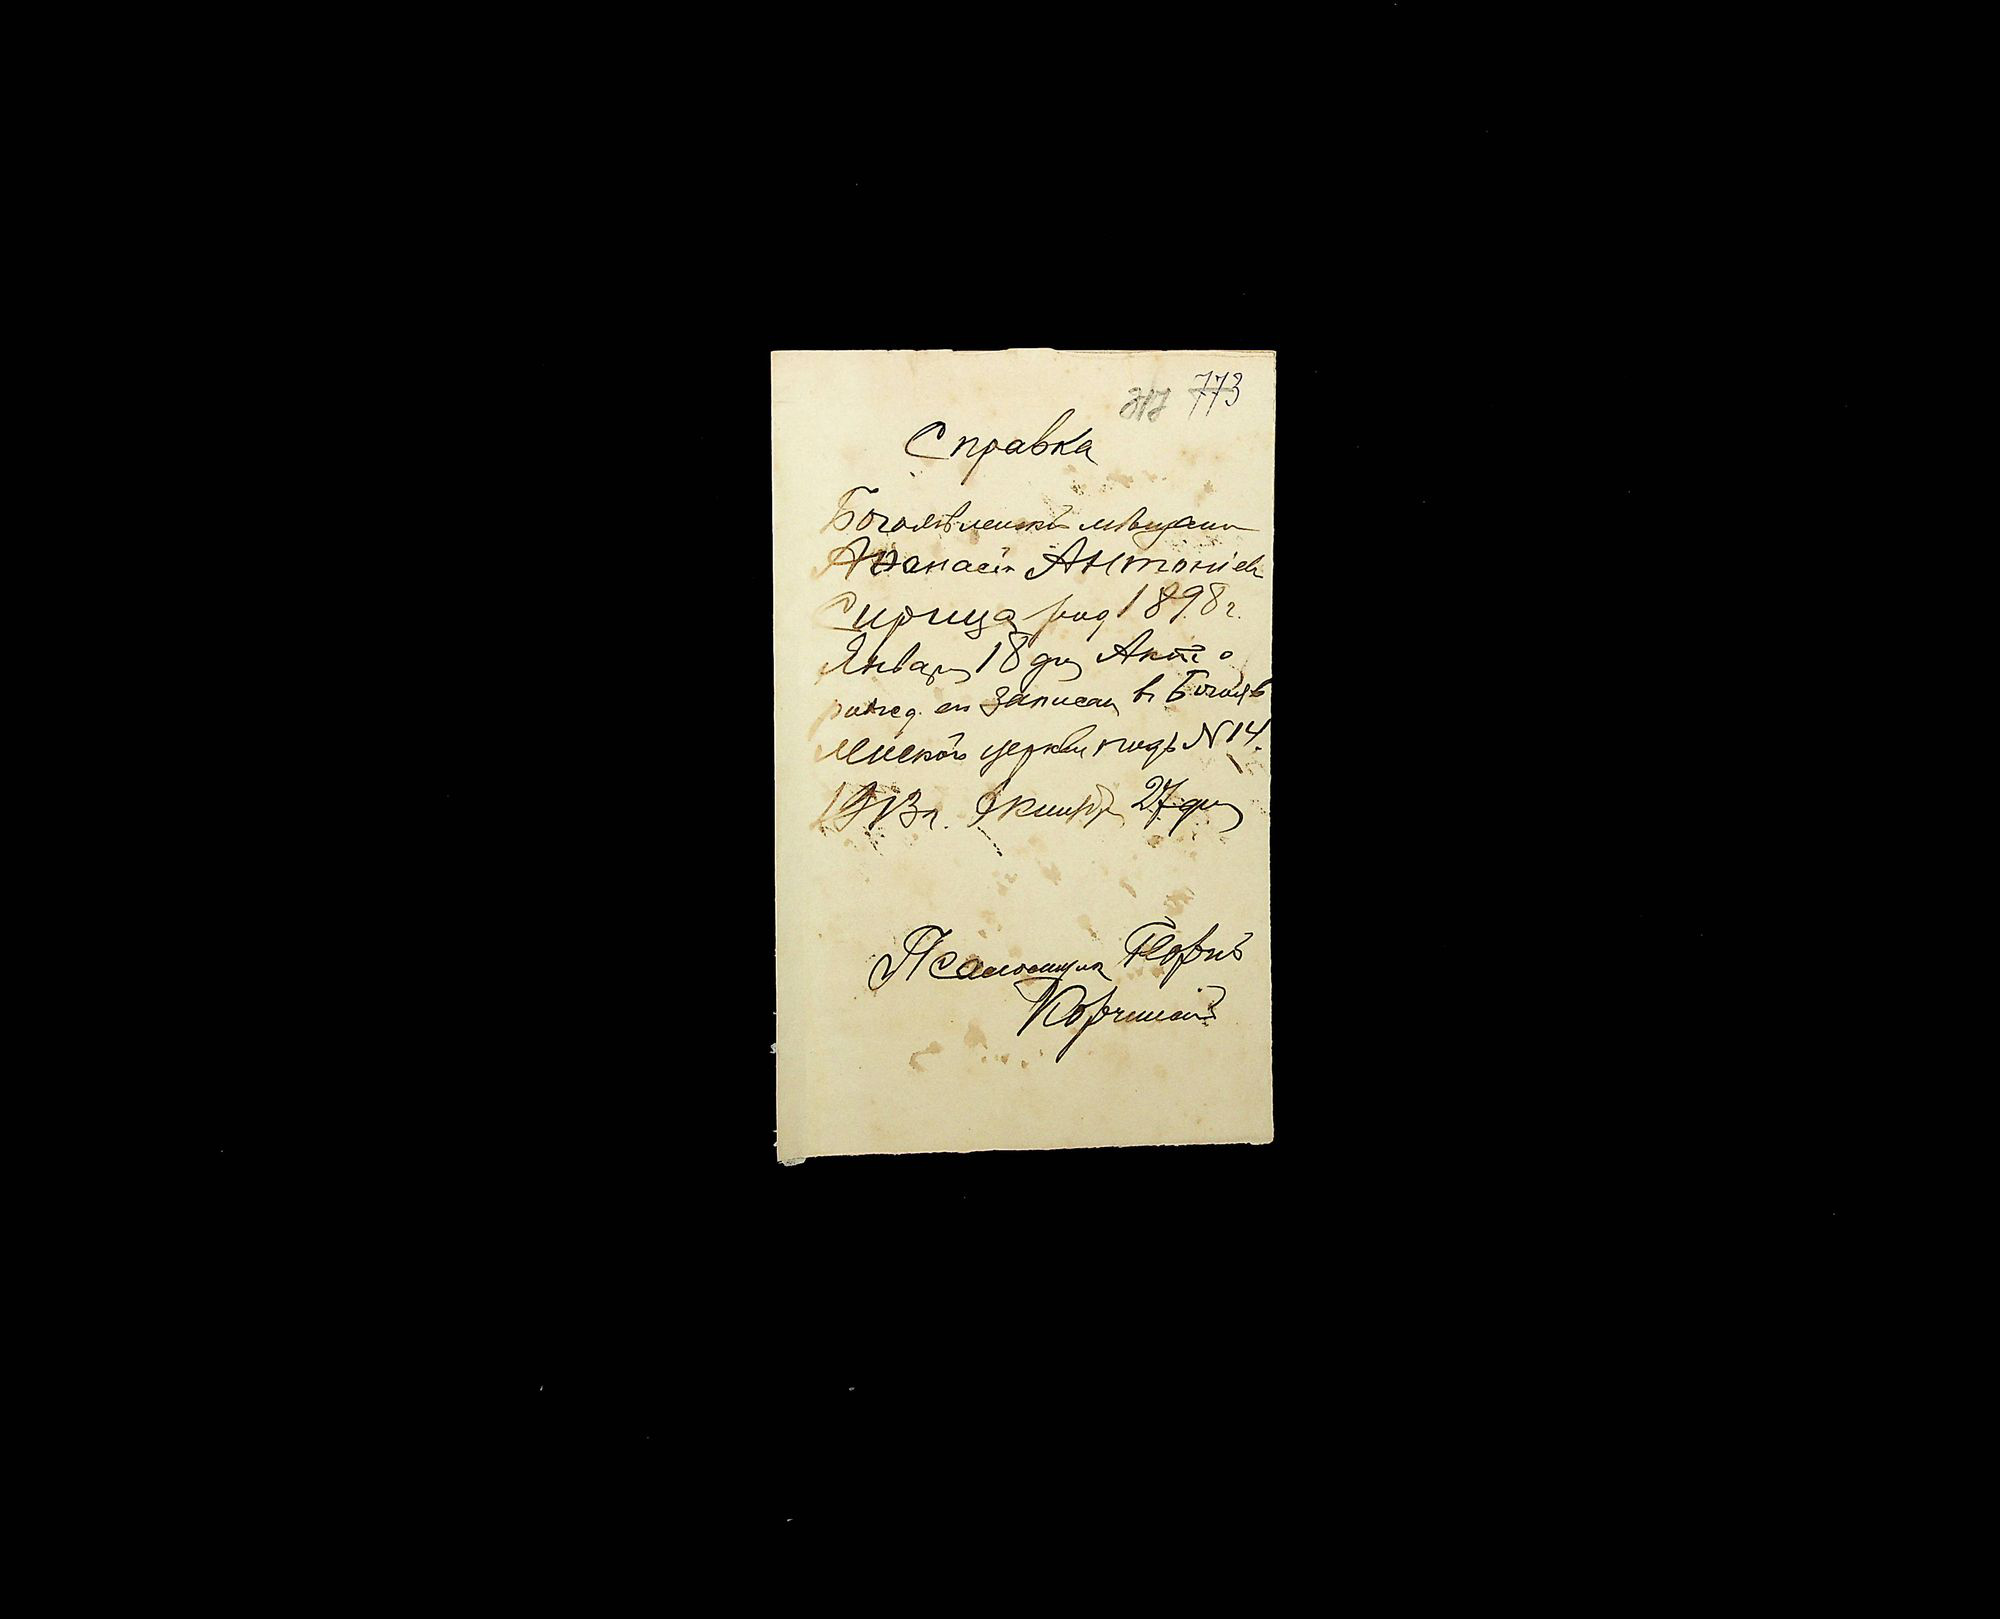 317 773
Справка
Богоявленскій мѣщанин
Аѳанасій Антоніев
Сирица род 1898 г.
Января 18 дня Актъ о
рожд. его записан въ Богояв
ленской церкви подъ N 14.
1913 г. 27 дня
Псаломщик